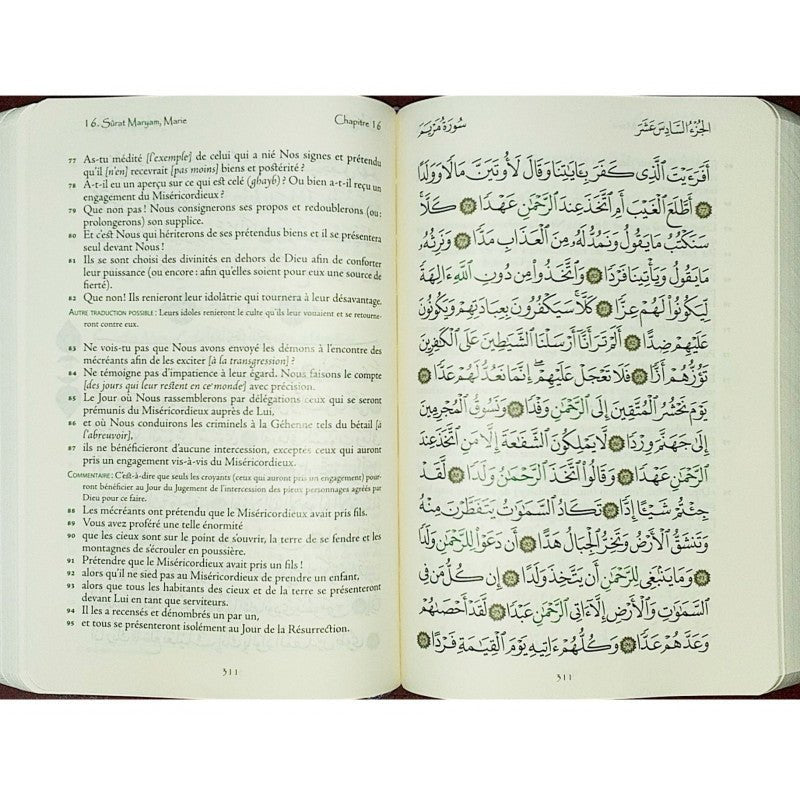 16. Sûrat Maryam, Marie Chapitre 16
77 As-tu médité [l'exemple] de celui qui a nié Nos signes et prétendu
qu'il [n'en] recevrait [pas moins] biens et postérité ?
78 A-t-il eu un aperçu sur ce qui est celé (ghayb) ? Ou bien a-t-il reçu un
engagement du Miséricordieux ?
79 Que non pas ! Nous consignerons ses propos et redoublerons (ou :
prolongerons) son supplice.
80 Et c'est Nous qui hériterons de ses prétendus biens et il se présentera
seul devant Nous !
81 Ils se sont choisi des divinités en dehors de Dieu afin de conforter
leur puissance (ou encore : afin qu'elles soient pour eux une source de
fierté).
82 Que non! Ils renieront leur idolâtrie qui tournera à leur désavantage.
Autre traduction possible : Leurs idoles renieront le culte qu'ils leur vouaient et se retourne-
ront contre eux.
83 Ne vois-tu pas que Nous avons envoyé les démons à l'encontre des
mécréants afin de les exciter [à la transgression] ?
84 Ne témoigne pas d'impatience à leur égard. Nous faisons le compte
[des jours qui leur restent en ce monde] avec précision.
85 Le Jour où Nous rassemblerons par délégations ceux qui se seront
prémunis du Miséricordieux auprès de Lui,
86 et où Nous conduirons les criminels à la Géhenne tels du bétail [à
l'abreuvoir],
87 ils ne bénéficieront d'aucune intercession, exceptés ceux qui auront
pris un engagement vis-à-vis du Miséricordieux.
Commentaire : C'est-à-dire que seuls les croyants (ceux qui auront pris un engagement) pour-
ront bénéficier au Jour du Jugement de l'intercession des pieux personnages agréés par
Dieu pour ce faire.
88 Les mécréants ont prétendu que le Miséricordieux avait pris fils.
89 Vous avez proféré une telle énormité
90 que les cieux sont sur le point de s'ouvrir, la terre de se fendre et les
montagnes de s'écrouler en poussière.
91 Prétendre que le Miséricordieux avait pris un fils !
92 alors qu'il ne sied pas au Miséricordieux de prendre un enfant,
93 alors que tous les habitants des cieux et de la terre se présenteront
devant Lui en tant que serviteurs.
94 Il les a recensés et dénombrés un par un,
95 et tous se présenteront isolément au Jour de la Résurrection.
311
الجُزْءُ السَّادِسَ عَشَرَ سُورَةُ مَرْيَمَ
أَفَرَءَيْتَ ٱلَّذِى كَفَرَ بِـَٔايَٰتِنَا وَقَالَ لَأُوتَيَنَّ مَالًا وَوَلَدًا
٧٧ أَطَّلَعَ ٱلْغَيْبَ أَمِ ٱتَّخَذَ عِندَ ٱلرَّحْمَٰنِ عَهْدًا ٧٨ كَلَّا
سَنَكْتُبُ مَا يَقُولُ وَنَمُدُّ لَهُۥ مِنَ ٱلْعَذَابِ مَدًّا ٧٩ وَنَرِثُهُۥ
مَا يَقُولُ وَيَأْتِينَا فَرْدًا ٨٠ وَٱتَّخَذُوا۟ مِن دُونِ ٱللَّهِ ءَالِهَةً
لِّيَكُونُوا۟ لَهُمْ عِزًّا ٨١ كَلَّا سَيَكْفُرُونَ بِعِبَادَتِهِمْ وَيَكُونُونَ
عَلَيْهِمْ ضِدًّا ٨٢ أَلَمْ تَرَ أَنَّآ أَرْسَلْنَا ٱلشَّيَٰطِينَ عَلَى ٱلْكَٰفِرِينَ
تَؤُزُّهُمْ أَزًّا ٨٣ فَلَا تَعْجَلْ عَلَيْهِمْ إِنَّمَا نَعُدُّ لَهُمْ عَدًّا ٨٤
يَوْمَ نَحْشُرُ ٱلْمُتَّقِينَ إِلَى ٱلرَّحْمَٰنِ وَفْدًا ٨٥ وَنَسُوقُ ٱلْمُجْرِمِينَ
إِلَىٰ جَهَنَّمَ وِرْدًا ٨٦ لَّا يَمْلِكُونَ ٱلشَّفَٰعَةَ إِلَّا مَنِ ٱتَّخَذَ عِندَ
ٱلرَّحْمَٰنِ عَهْدًا ٨٧ وَقَالُوا۟ ٱتَّخَذَ ٱلرَّحْمَٰنُ وَلَدًا ٨٨ لَّقَدْ
جِئْتُمْ شَيْـًٔا إِدًّا ٨٩ تَكَادُ ٱلسَّمَٰوَٰتُ يَتَفَطَّرْنَ مِنْهُ
وَتَنشَقُّ ٱلْأَرْضُ وَتَخِرُّ ٱلْجِبَالُ هَدًّا ٩٠ أَن دَعَوْا۟ لِلرَّحْمَٰنِ وَلَدًا
٩١ وَمَا يَنۢبَغِى لِلرَّحْمَٰنِ أَن يَتَّخِذَ وَلَدًا ٩٢ إِن كُلُّ مَن فِى
ٱلسَّمَٰوَٰتِ وَٱلْأَرْضِ إِلَّآ ءَاتِى ٱلرَّحْمَٰنِ عَبْدًا ٩٣ لَّقَدْ أَحْصَىٰهُمْ
وَعَدَّهُمْ عَدًّا ٩٤ وَكُلُّهُمْ ءَاتِيهِ يَوْمَ ٱلْقِيَٰمَةِ فَرْدًا ٩٥
311